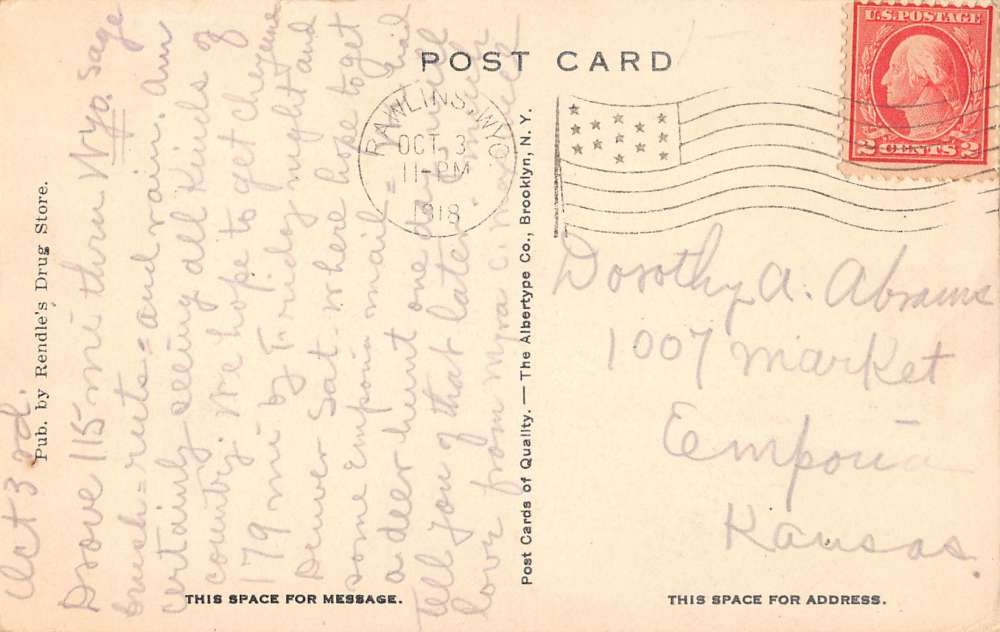 POST CARD
U.S. POSTAGE
2 CENTS 2
RAWLINS, WYO.
OCT 3
11-PM
1918
Oct 3rd.
Drove 115 mi thru Wyo. sage
brush = ruts = and rain. Am
certainly seeing all kinds of
country. We hope to get Cheyenne
179 mi by Friday night and
Denver Sat. where hope to get
some Emporia mail = Had
a deer hunt one day = will
tell you of that later.
love from Myra
Dorothy A. Abrams
1007 Market
Emporia
Kansas
Pub. by Rendle's Drug Store.
Post Cards of Quality. — The Albertype Co., Brooklyn, N. Y.
THIS SPACE FOR MESSAGE.
THIS SPACE FOR ADDRESS.